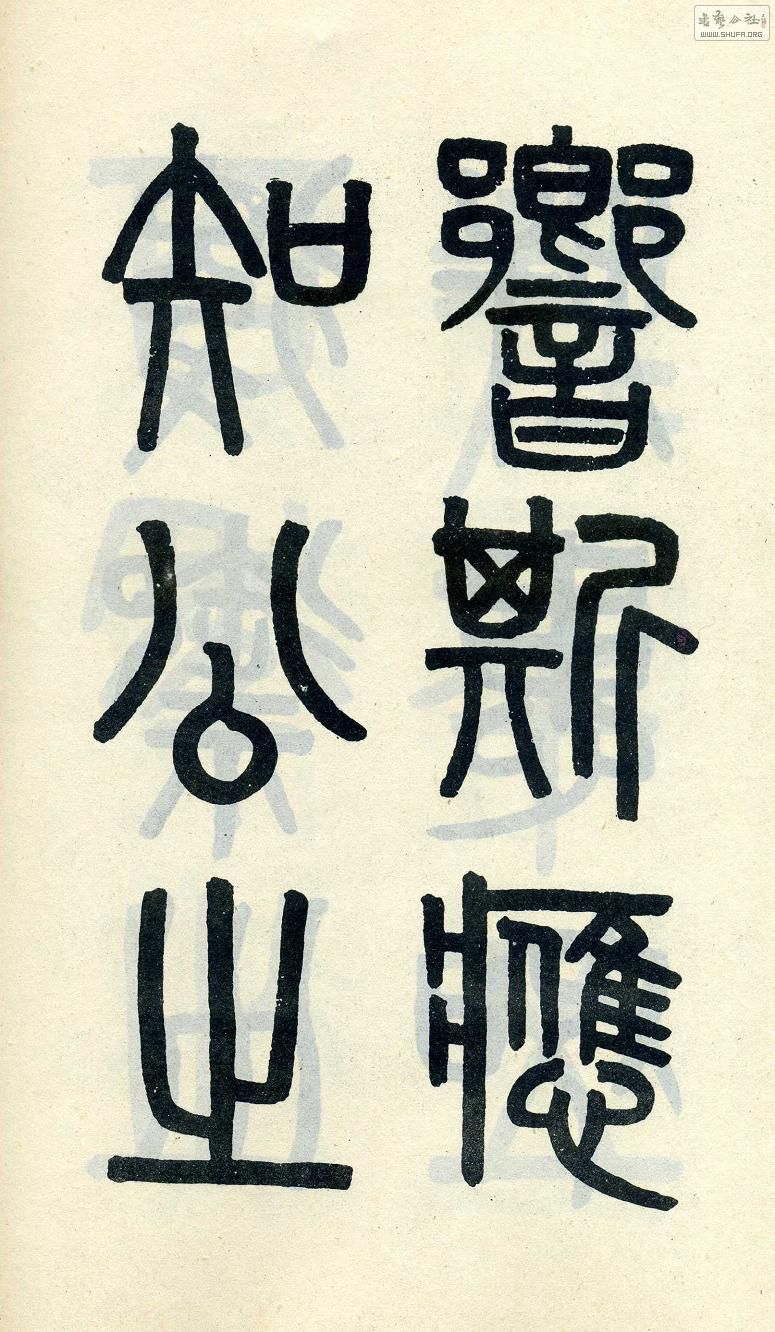 響斯應
知公之
書藝公社
WWW.SHUFA.ORG